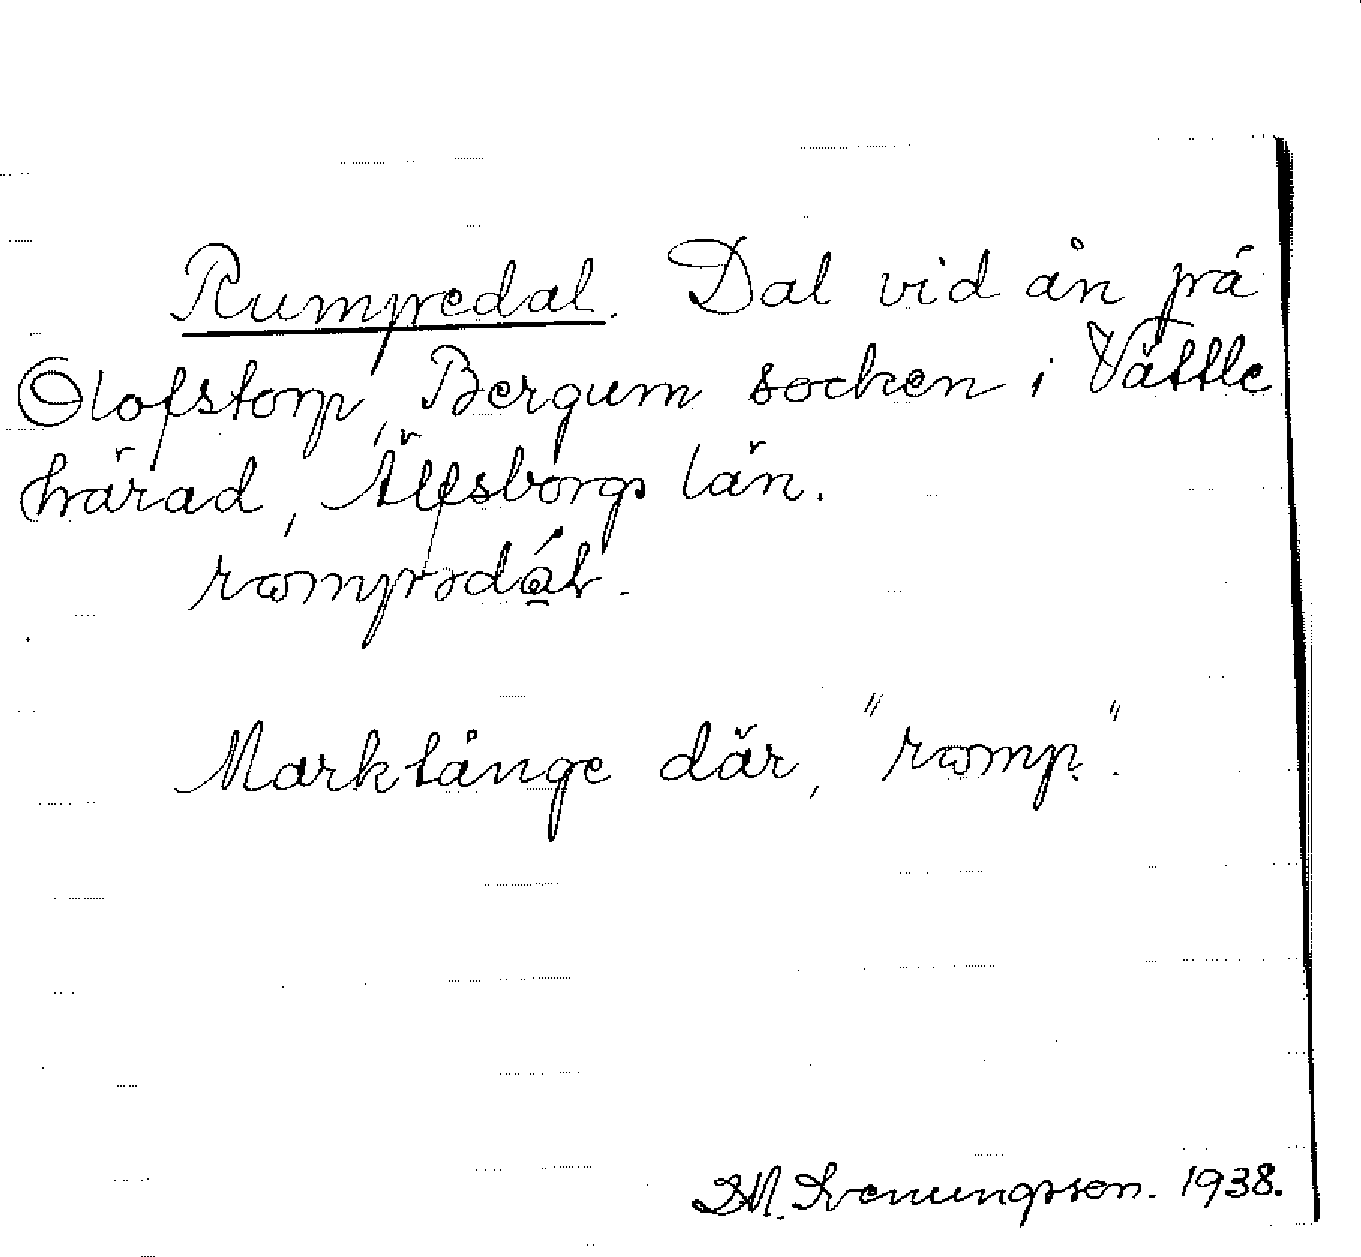 Rumpedal. Dal vid ån på
Olofstorp, Bergum socken i Vättle
härad, Älfsborgs län.
rompədál.
Marktånge där, "romp".
S.M. Svenungsson. 1938.